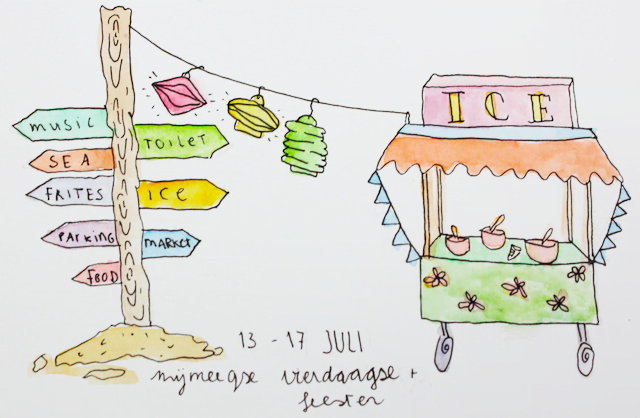 MUSIC
TOILET
SEA
FRITES
ICE
PARKING
MARKET
FOOD
ICE
13 - 17 JULI
mijmeegse vierdaagse +
feesten